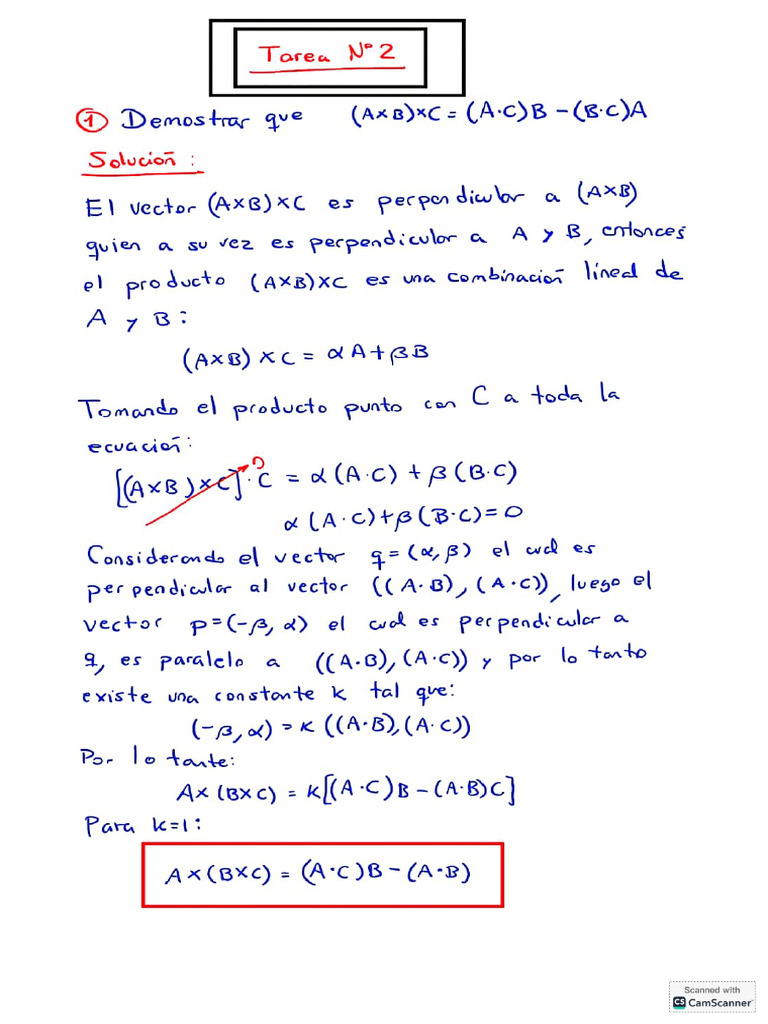 Tarea N° 2
① Demostrar que (A×B)×C = (A·C)B − (B·C)A
Solución:
El vector (A×B)×C es perpendicular a (A×B)
quien a su vez es perpendicular a A y B, entonces
el producto (A×B)×C es una combinación lineal de
A y B:
(A×B)×C = αA+βB
Tomando el producto punto con C a toda la
ecuación:
[(A×B)×C]·C = α(A·C) + β(B·C)
0
α(A·C)+β(B·C)=0
Considerando el vector q=(α,β) el cual es
perpendicular al vector ((A·B),(A·C)), luego el
vector p=(-β,α) el cual es perpendicular a
q, es paralelo a ((A·B),(A·C)) y por lo tanto
existe una constante k tal que:
(-β,α) = k((A·B),(A·C))
Por lo tanto:
A×(B×C) = k[(A·C)B−(A·B)C]
Para k=1:
A×(B×C) = (A·C)B−(A·B)
Scanned with
CS CamScanner